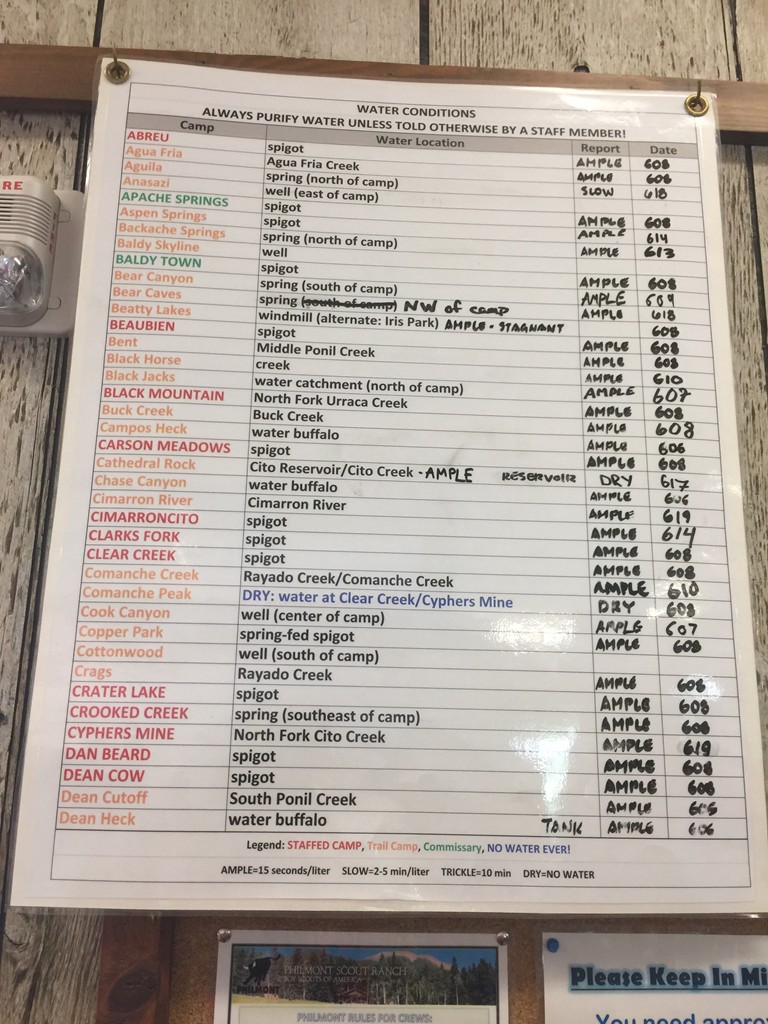 RE
WATER CONDITIONS
ALWAYS PURIFY WATER UNLESS TOLD OTHERWISE BY A STAFF MEMBER!
Camp Water Location Report Date
ABREU spigot AMPLE 608
Agua Fria Agua Fria Creek AMPLE 606
Aguila spring (north of camp) SLOW 618
Anasazi well (east of camp)
APACHE SPRINGS spigot AMPLE 608
Aspen Springs spigot AMPLE 614
Backache Springs spring (north of camp) AMPLE 613
Baldy Skyline well
BALDY TOWN spigot AMPLE 608
Bear Canyon spring (south of camp) AMPLE 609
Bear Caves spring (south of camp) NW of camp AMPLE 618
Beatty Lakes windmill (alternate: Iris Park) AMPLE - STAGNANT 608
BEAUBIEN spigot AMPLE 608
Bent Middle Ponil Creek AMPLE 608
Black Horse creek AMPLE 610
Black Jacks water catchment (north of camp) AMPLE 607
BLACK MOUNTAIN North Fork Urraca Creek AMPLE 608
Buck Creek Buck Creek AMPLE 608
Campos Heck water buffalo AMPLE 606
CARSON MEADOWS spigot AMPLE 608
Cathedral Rock Cito Reservoir/Cito Creek - AMPLE RESERVOIR DRY 617
Chase Canyon water buffalo AMPLE 606
Cimarron River Cimarron River AMPLE 619
CIMARRONCITO spigot AMPLE 614
CLARKS FORK spigot AMPLE 608
CLEAR CREEK spigot AMPLE 608
Comanche Creek Rayado Creek/Comanche Creek AMPLE 610
Comanche Peak DRY: water at Clear Creek/Cyphers Mine DRY 608
Cook Canyon well (center of camp) AMPLE 607
Copper Park spring-fed spigot AMPLE 608
Cottonwood well (south of camp)
Crags Rayado Creek AMPLE 608
CRATER LAKE spigot AMPLE 608
CROOKED CREEK spring (southeast of camp) AMPLE 608
CYPHERS MINE North Fork Cito Creek AMPLE 619
DAN BEARD spigot AMPLE 608
DEAN COW spigot AMPLE 608
Dean Cutoff South Ponil Creek AMPLE 605
Dean Heck water buffalo TANK AMPLE 606
Legend: STAFFED CAMP, Trail Camp, Commissary, NO WATER EVER!
AMPLE=15 seconds/liter SLOW=2-5 min/liter TRICKLE=10 min DRY=NO WATER
PHILMONT SCOUT RANCH
BOY SCOUTS OF AMERICA
PHILMONT
PHILMONT RULES FOR CREWS:
Please Keep In Mi
You need appro